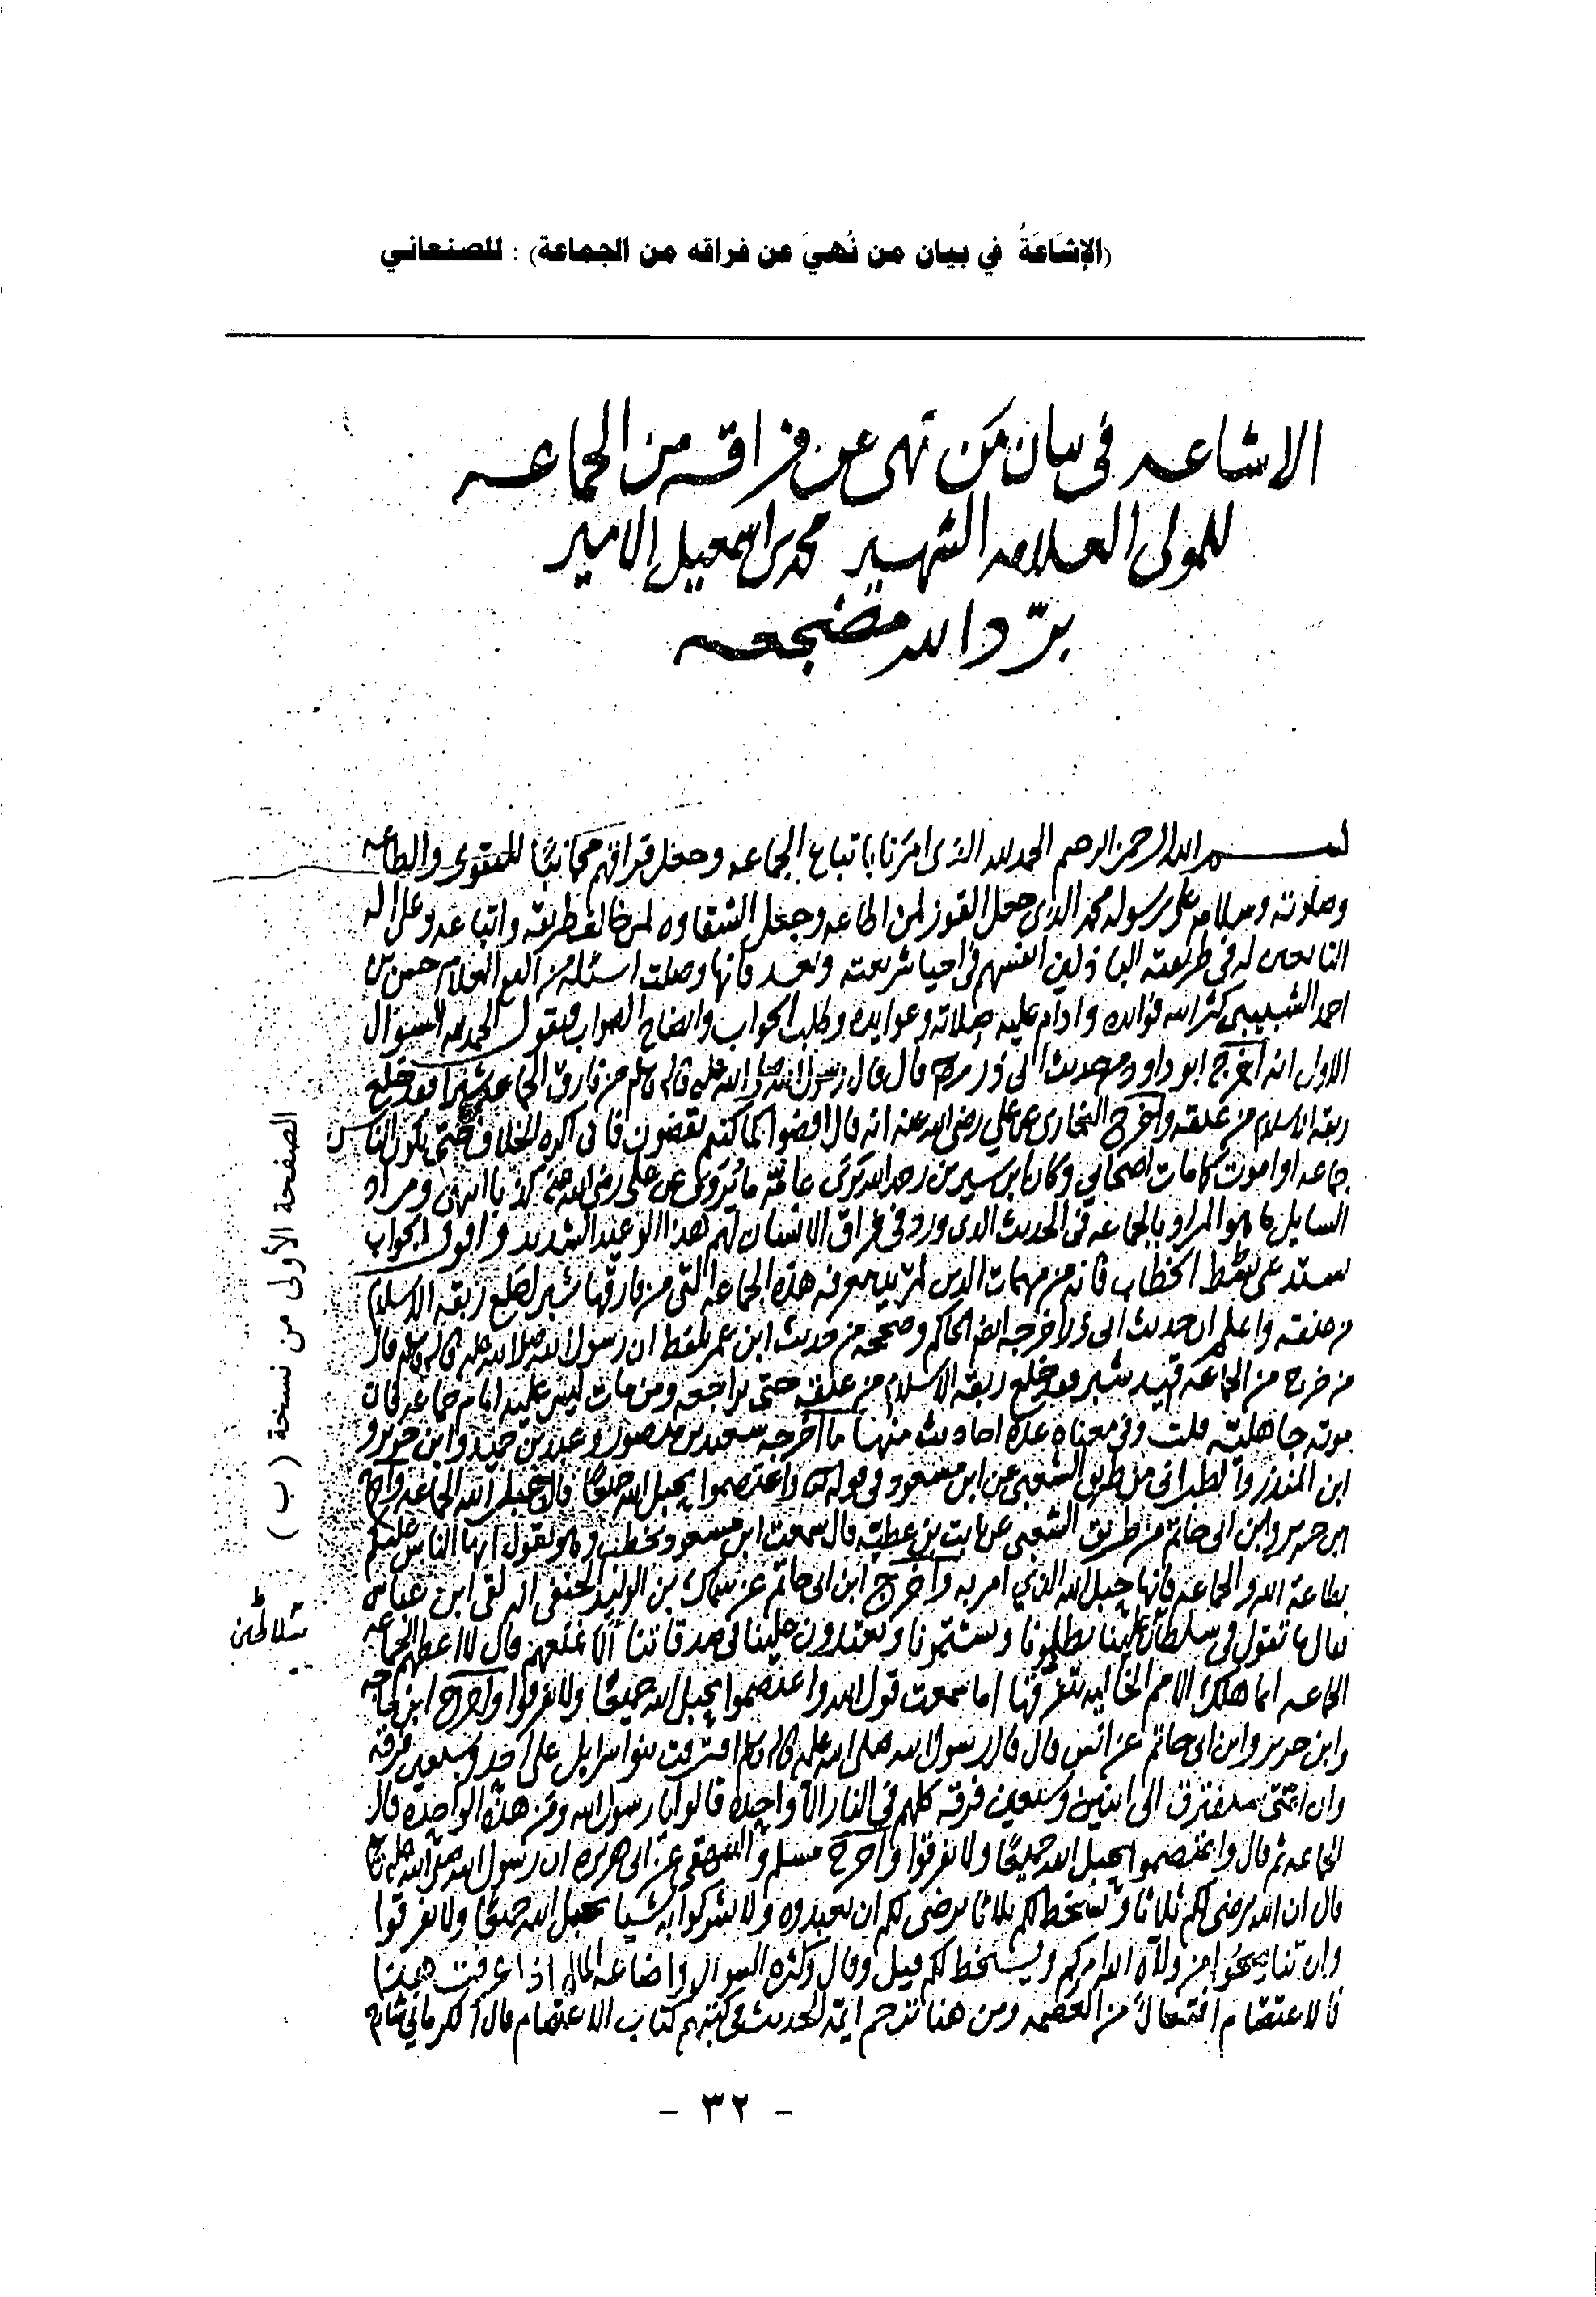 (الإشَاعَةُ في بيان من نُهيَ عن فراقه من الجماعة) : للصنعاني
الاشاعه في بيان من نهى عن فراقه من الجماعه
للمولى العلامه الشهير محمد بن اسمعيل الامير
برّد الله مضجعه
بسم الله الرحمن الرحيم الحمد لله الذي امرنا باتباع الجماعه وجعل فراقهم مجانبًا للتقوى والطاعه
وصلوته وسلامه على رسوله محمد الذي جعل الفوز لمن اطاعه وجعل الشقاوه لمن خالف طريقه واتباعه وعلى اله
التابعين له في طريقته الباذلين انفسهم في احيا شريعته وبعد فانها وصلت اسئله من الولد العلام حسن بن
احمد الشبيبي كثر الله فوائده وادام عليه صلاته وعوايده وطلب الجواب وايضاح الصواب فيقول الحمد لله السوال
الاول انه اخرج ابو داود من حديث ابي ذر مرفوعا قال قال رسول الله صلى الله عليه واله وسلم من فارق الجماعه شبرا فقد خلع
ربقه الاسلام من عنقه واخرج البخاري عن علي رضي الله عنه انه قال اقضوا كما كنتم تقضون فاني اكره الخلاف حتى يكون الناس
جماعه او اموت كما مات اصحابي وكان ابن سيرين رحمه الله يرى عامّة ما يُروى عن علي رضي الله عنه كذبا انتهى ومراد
السايل ما هو المراد بالجماعه في الحديث الذي ورد في فراق الانسان لهم هذا الوعيد الشديد واقول الجواب
يستدعي بسط الخطاب فانه من مهمات الدين لمن يريد معرفه هذه الجماعه التي من فارقها شبر لخلع ربقه الاسلام
من عنقه واعلم ان حديث ابي ذر اخرجه ايضا الحاكم وصححه من حديث ابن عمر بلفظ ان رسول الله صلى الله عليه واله وسلم قال
من خرج من الجماعه قيد شبر فقد خلع ربقه الاسلام من عنقه حتى يراجعه ومن مات ليس عليه امام جماعه فان
موته جاهليه قلت وفي معناه عده احاديث منها ما اخرجه سعيد بن منصور وعبد بن حميد وابن جرير و
ابن المنذر والطبراني من طريق الشعبي عن ابن مسعود في قوله تعالى واعتصموا بحبل الله جميعًا قال حبل الله الجماعه واخرج
ابن جرير وابن ابي حاتم من طريق الشعبي عن ثابت بن عطيه قال سمعت ابن مسعود يخطب وهو يقول ايها الناس عليكم
بطاعة الله والجماعه فانها حبل الله الذي امر به واخرج ابن ابي حاتم عن سماك بن الوليد الحنفي انه لقي ابن عباس
فقال ما تقول في سلطان علينا يظلمونا ويشتمونا ويعتدون علينا في صدقاتنا الا نمنعهم قال لا اعطهم الجماعه
الجماعه انما هلك الامم الخاليه بتفرقها اما سمعت قول الله واعتصموا بحبل الله جميعًا ولا تفرقوا واخرج ابن ماجه
وابن جرير وابن ابي حاتم عن انس قال قال رسول الله صلى الله عليه واله وسلم افترقت بنو اسرايل على احد وسبعين فرقه
وان امتي ستفترق الى اثنتين وسبعين فرقه كلهم في النار الا واحده قالوا يا رسول الله ومن هذه الواحده قال
الجماعه ثم قال واعتصموا بحبل الله جميعًا ولا تفرقوا واخرج مسلم والبيهقي عن ابي هريره ان رسول الله صلى الله عليه واله وسلم
قال ان الله يرضى لكم ثلاثا ويسخط لكم ثلاثا يرضى لكم ان تعبدوه ولا تشركوا به شيا بحبل الله جميعًا ولا تفرقوا
وان تناصحوا من ولاه الله امركم ويسخط لكم قيل وقال وكثره السوال واضاعه المال اذا عرفت هذا
فالاعتصام افتعال من العصمه ومن هنا ترجم ايمه الحديث في كتبهم كتاب الاعتصام قال الكرماني
سلاطين
الصفحة الأولى من نسخة ( ب )
- ٣٢ -